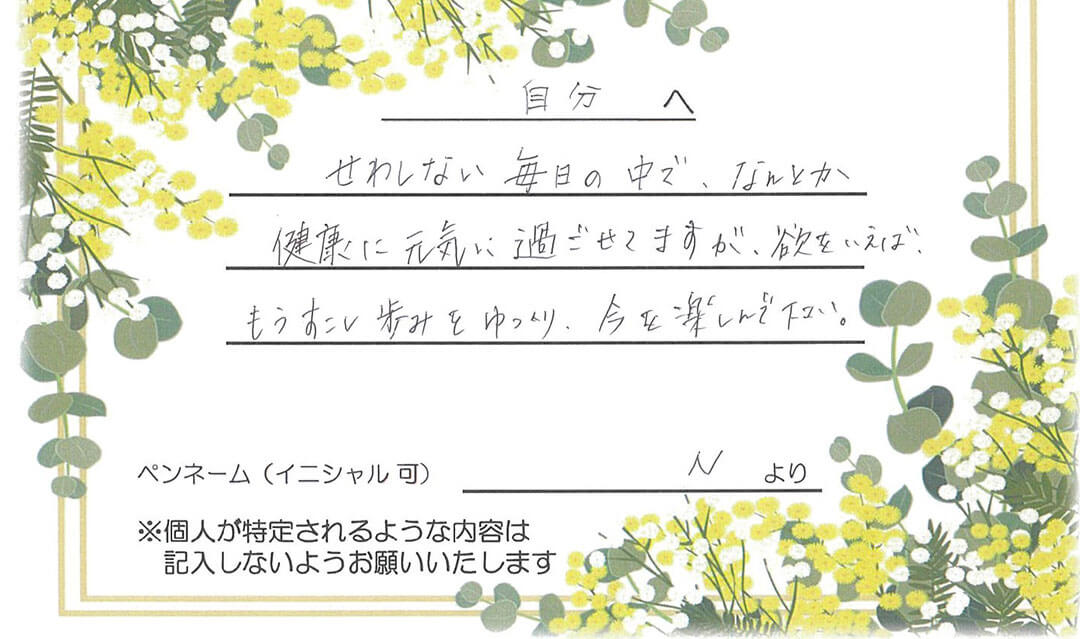 自分 へ
せわしない 毎日の 中で、なんとか
健康に 元気に 過ごせてますが、欲をいえば、
もうすこし 歩みを ゆっくり、今を 楽しんで下さい。
ペンネーム（イニシャル 可） N より
※個人が特定されるような内容は
記入しないようお願いいたします